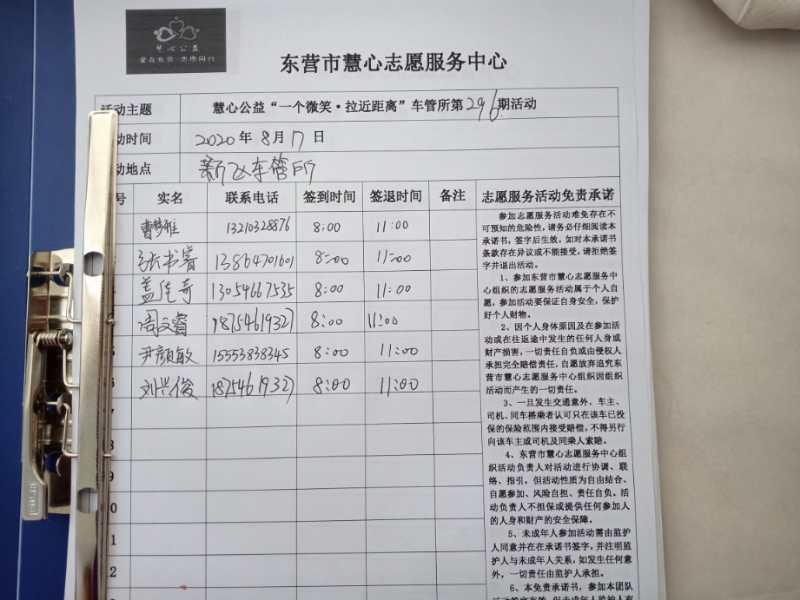 慧心公益
东营市慧心志愿服务中心
活动主题 慧心公益“一个微笑·拉近距离”车管所第296期活动
动时间 2020年8月17日
动地点 新区车管所
号 实名 联系电话 签到时间 签退时间 备注 志愿服务活动免责承诺
曹梦雅 13210328876 8:00 11:00
张书睿 13864701601 8:00 11:00
盖佳奇 13054667535 8:00 11:00
周文睿 18754619327 8:00 11:00
尹颜敏 15553838345 8:00 11:00
刘兴俊 18254619327 8:00 11:00
7
8
9
0
1
2
参加志愿服务活动难免存在不
可预知的危险性，请务必仔细阅读本
承诺书，签字后生效，如对本承诺书
条款存在异议或不能接受，请拒绝签
字并退出活动。
1、参加东营市慧心志愿服务中
心组织的志愿服务活动属于个人自
愿，参加活动要保证自身安全，保护
好个人财物。
2、因个人身体原因及在参加活
动或在往返途中发生的任何人身或
财产损害，一切责任自负或由侵权人
承担完全赔偿责任，自愿放弃追究东
营市慧心志愿服务中心组织因组织
活动而产生的一切责任。
3、一旦发生交通意外、车主、
司机、同车搭乘者认可只在该车已投
保的保险范围内接受赔偿，不得另行
向该车主或司机及同乘人索赔。
4、东营市慧心志愿服务中心组
织活动负责人对活动进行协调、联
络、指引，但活动性质为自由结合、
自愿参加、风险自担、责任自负。活
动负责人不担保或提供任何参加人
的人身和财产的安全保障。
5、未成年人参加活动需由监护
人同意并在在承诺书签字，并注明监
护人与未成年人关系，如发生任何意
外，一切责任由监护人承担。
6、本免责承诺书，参加本团队